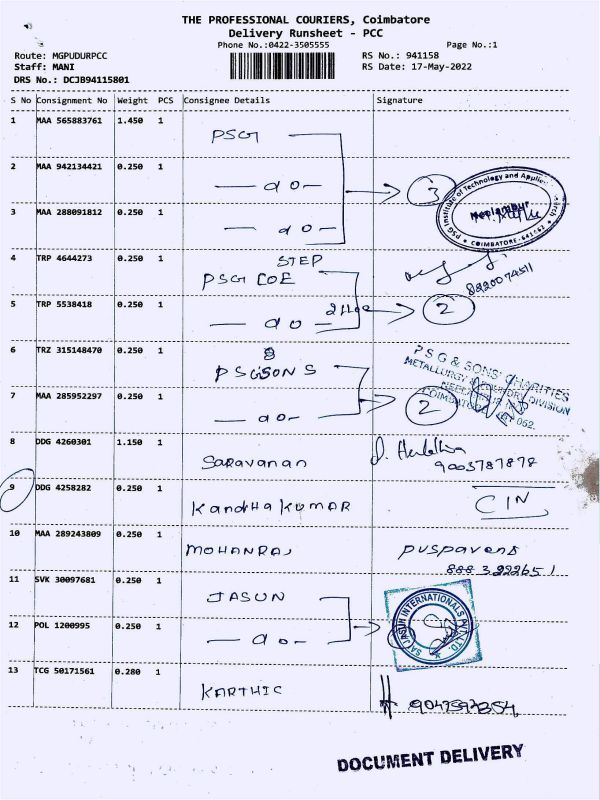 THE PROFESSIONAL COURIERS, Coimbatore
Delivery Runsheet - PCC
Phone No.:0422-3505555
Page No.:1
Route: MGPUDURPCC
RS No.: 941158
Staff: MANI
RS Date: 17-May-2022
DRS No.: DCJB94115801
S No Consignment No Weight PCS Consignee Details Signature
1 MAA 565883761 1.450 1 PSG
2 MAA 942134421 0.250 1 — do — 3
PSG Institute of Technology and Applied
Neelambur
COIMBATORE - 641 062
3 MAA 288091812 0.250 1 — do —
4 TRP 4644273 0.250 1 STEP
PSG COE
8220074511
5 TRP 5538418 0.250 1 — do — 2
6 TRZ 315148470 0.250 1 PSGSONS
PSG & SONS' CHARITIES
METALLURGY & FOUNDRY DIVISION
COIMBATORE 062.
7 MAA 285952297 0.250 1 — do — 2
8 DDG 4260301 1.150 1 Saravanan
9003787878
9 DDG 4258282 0.250 1 Kandha Kumar CIN
10 MAA 289243809 0.250 1 MOHANRAJ
8883222651
11 SVK 30097681 0.250 1 JASUN
JASUN INTERNATIONALS PVT LTD.
12 POL 1200995 0.250 1 — do —
13 TCG 50171561 0.280 1 KARTHIC
DOCUMENT DELIVERY